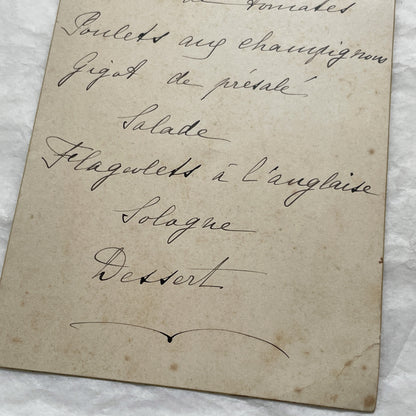 de tomates
Poulets aux champignons
Gigot de présalé
Salade
Flageolets à l'anglaise
Sologne
Dessert